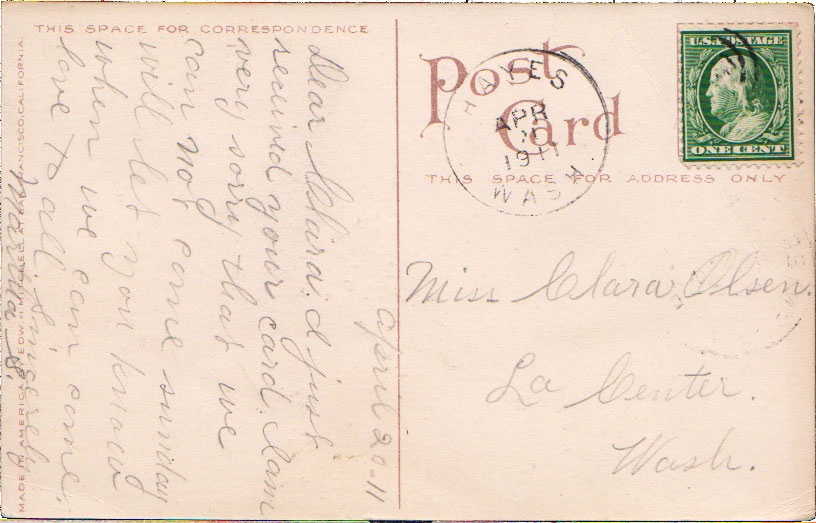 THIS SPACE FOR CORRESPONDENCE
Post
Card
THIS SPACE FOR ADDRESS ONLY
U.S. POSTAGE
ONE CENT
HAYES
APR
1911
WASH.
April 20-11
Dear Clara. I just
received your card. I am
very sorry that we
can not come sunday
will let you know
when we can come.
love to all Sincerely
Miss Clara Olsen.
La Center.
Wash.
MADE IN AMERICA EDW. H. MITCHELL SAN FRANCISCO, CALIFORNIA.